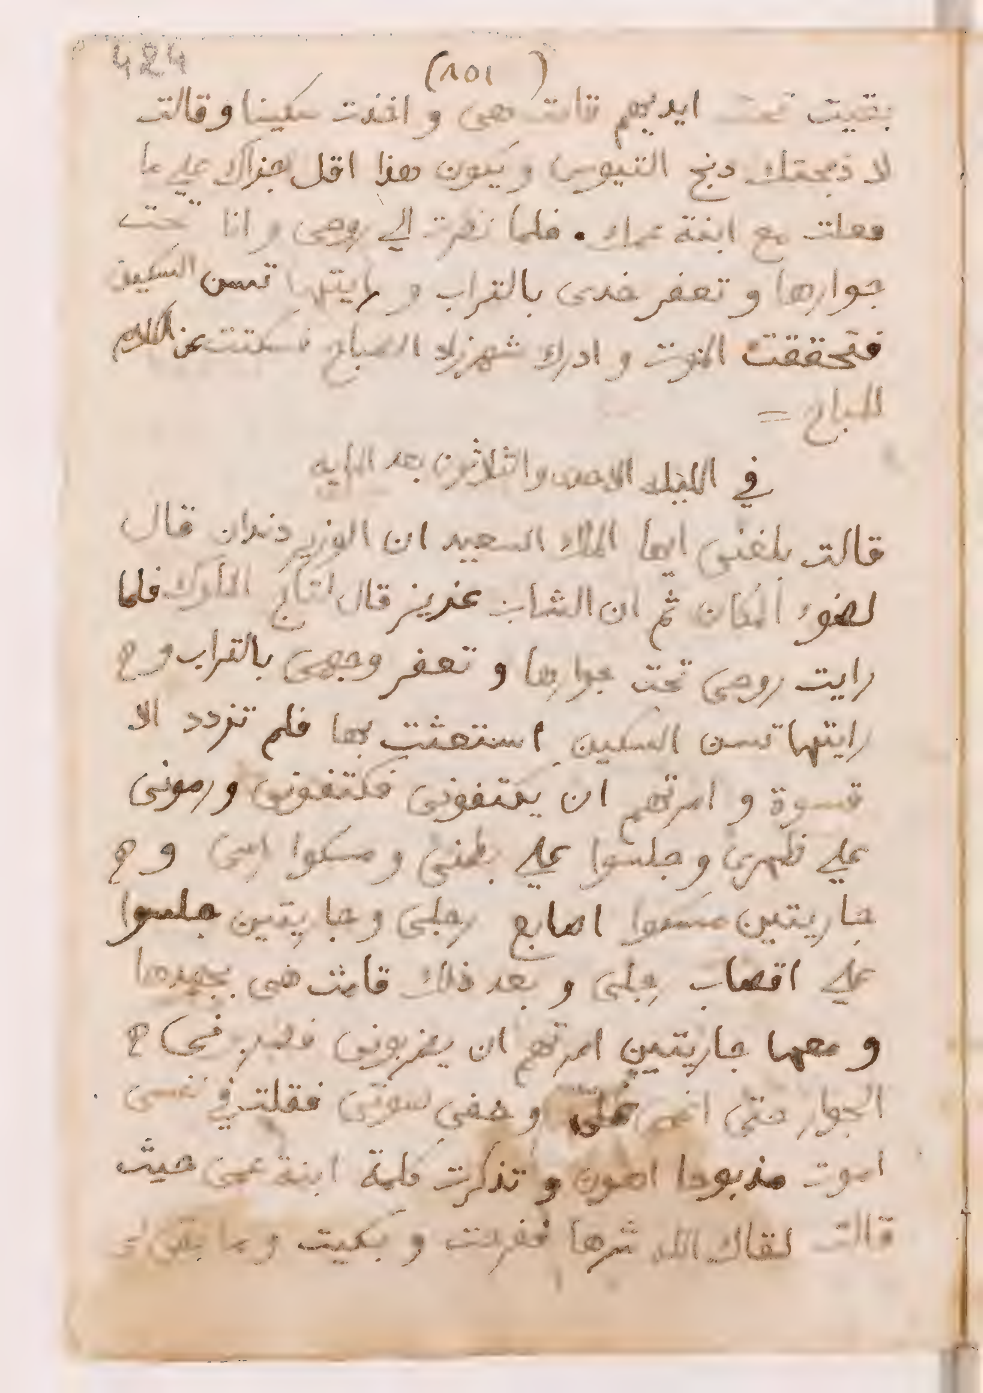 424
(101)
بقيت تحت ايديهم قامت هى و اخذت سكينا و قالت
لا ذبحنك دبح التيوس و يكون هذا اقل جزاك علي ما
فعلت مع ابنة عمك . فلما نضرت الي روحى و انا تحت
جوارها و تعفر خدى بالتراب و رايتها تسن السكين
فتحققت الموت و ادرك شهرزاد الصباح فسكتت عن الكلام
المباح =
في الليله الاحدى والثلاثون بعد المايه
قالت بلغنى ايها الملك السعيد ان الوزير دندان قال
لضوء المكان ثم ان الشاب عزيز قال لتاج الملوك فلما
رايت روحى تحت جوارها و تعفر وجهى بالتراب و
رايتها تسن السكين استغثت بها فلم تزدد الا
قسوة و امرتهم ان يكتفونى فكتفونى و رمونى
علي ظهرى و جلسوا علي بطنى و مسكوا راسى و
جاريتين مسكوا اصابع رجلى و جاريتين جلسوا
علي اقصاب رجلى و بعد ذلك قامت هى بجهدها
و معها جاريتين امرتهم ان يضربونى
الجوار حتى و خفى صوتى فقلت في نفسى
اموت مذبوحا اهون و تذكرت كلمة ابنة عمى حيث
قالت لقاك الله شرها فصرخت و بكيت و ما بقى لى